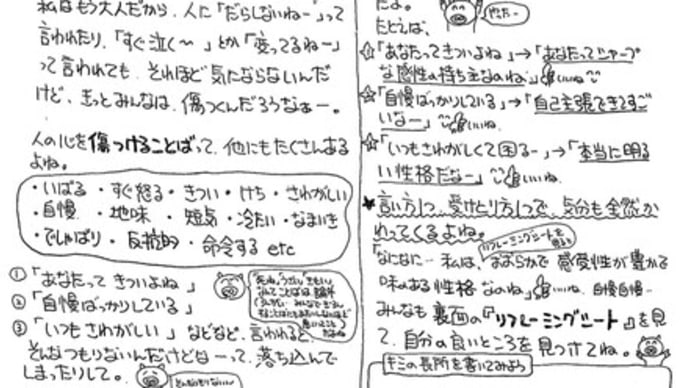 私はもう大人だから、人に「だらしないねー」って
言われたり、「すぐ泣く〜」とか「変ってるねー」
って言われても、それほど気にならないんだ
けど、きっとみんなは、傷つくんだろうなぁー。
人の心を傷つけることばって、他にもたくさんある
よね。
・いばる・すぐ怒る・きつい・けち・さわがしい
・自慢・地味・短気・冷たい・なまいき
・でしゃばり・反抗的・命令する etc
①「あなたってきついよね」
②「自慢ばっかりしている」
③「いつもさわがしい」などなど、言われると、
そんなつもりないんだけどなーって、落ち込んで
しまったりして。
だよ。
たとえば、
☆「あなたってきついよね」→「あなたってシャープ
な感性の持ち主なのね」いいね
☆「自慢ばっかりしている」→「自己主張できてすご
いなー」いいね
☆「いつもさわがしくて困るー」→「本当に明る
い性格だなー」いいね
★言い方1つ、受けとり方1つで、気分も全然か
わってくるよね。
リフレーミングシートを見ると
「なになに…私は、おおらかで感受性が豊かで
味のある性格なのね」いいね 自慢自慢…
みんなも裏面の『リフレーミングシート』を見
て、自分の良いところを見つけてね。
キミの長所を書いてみよう